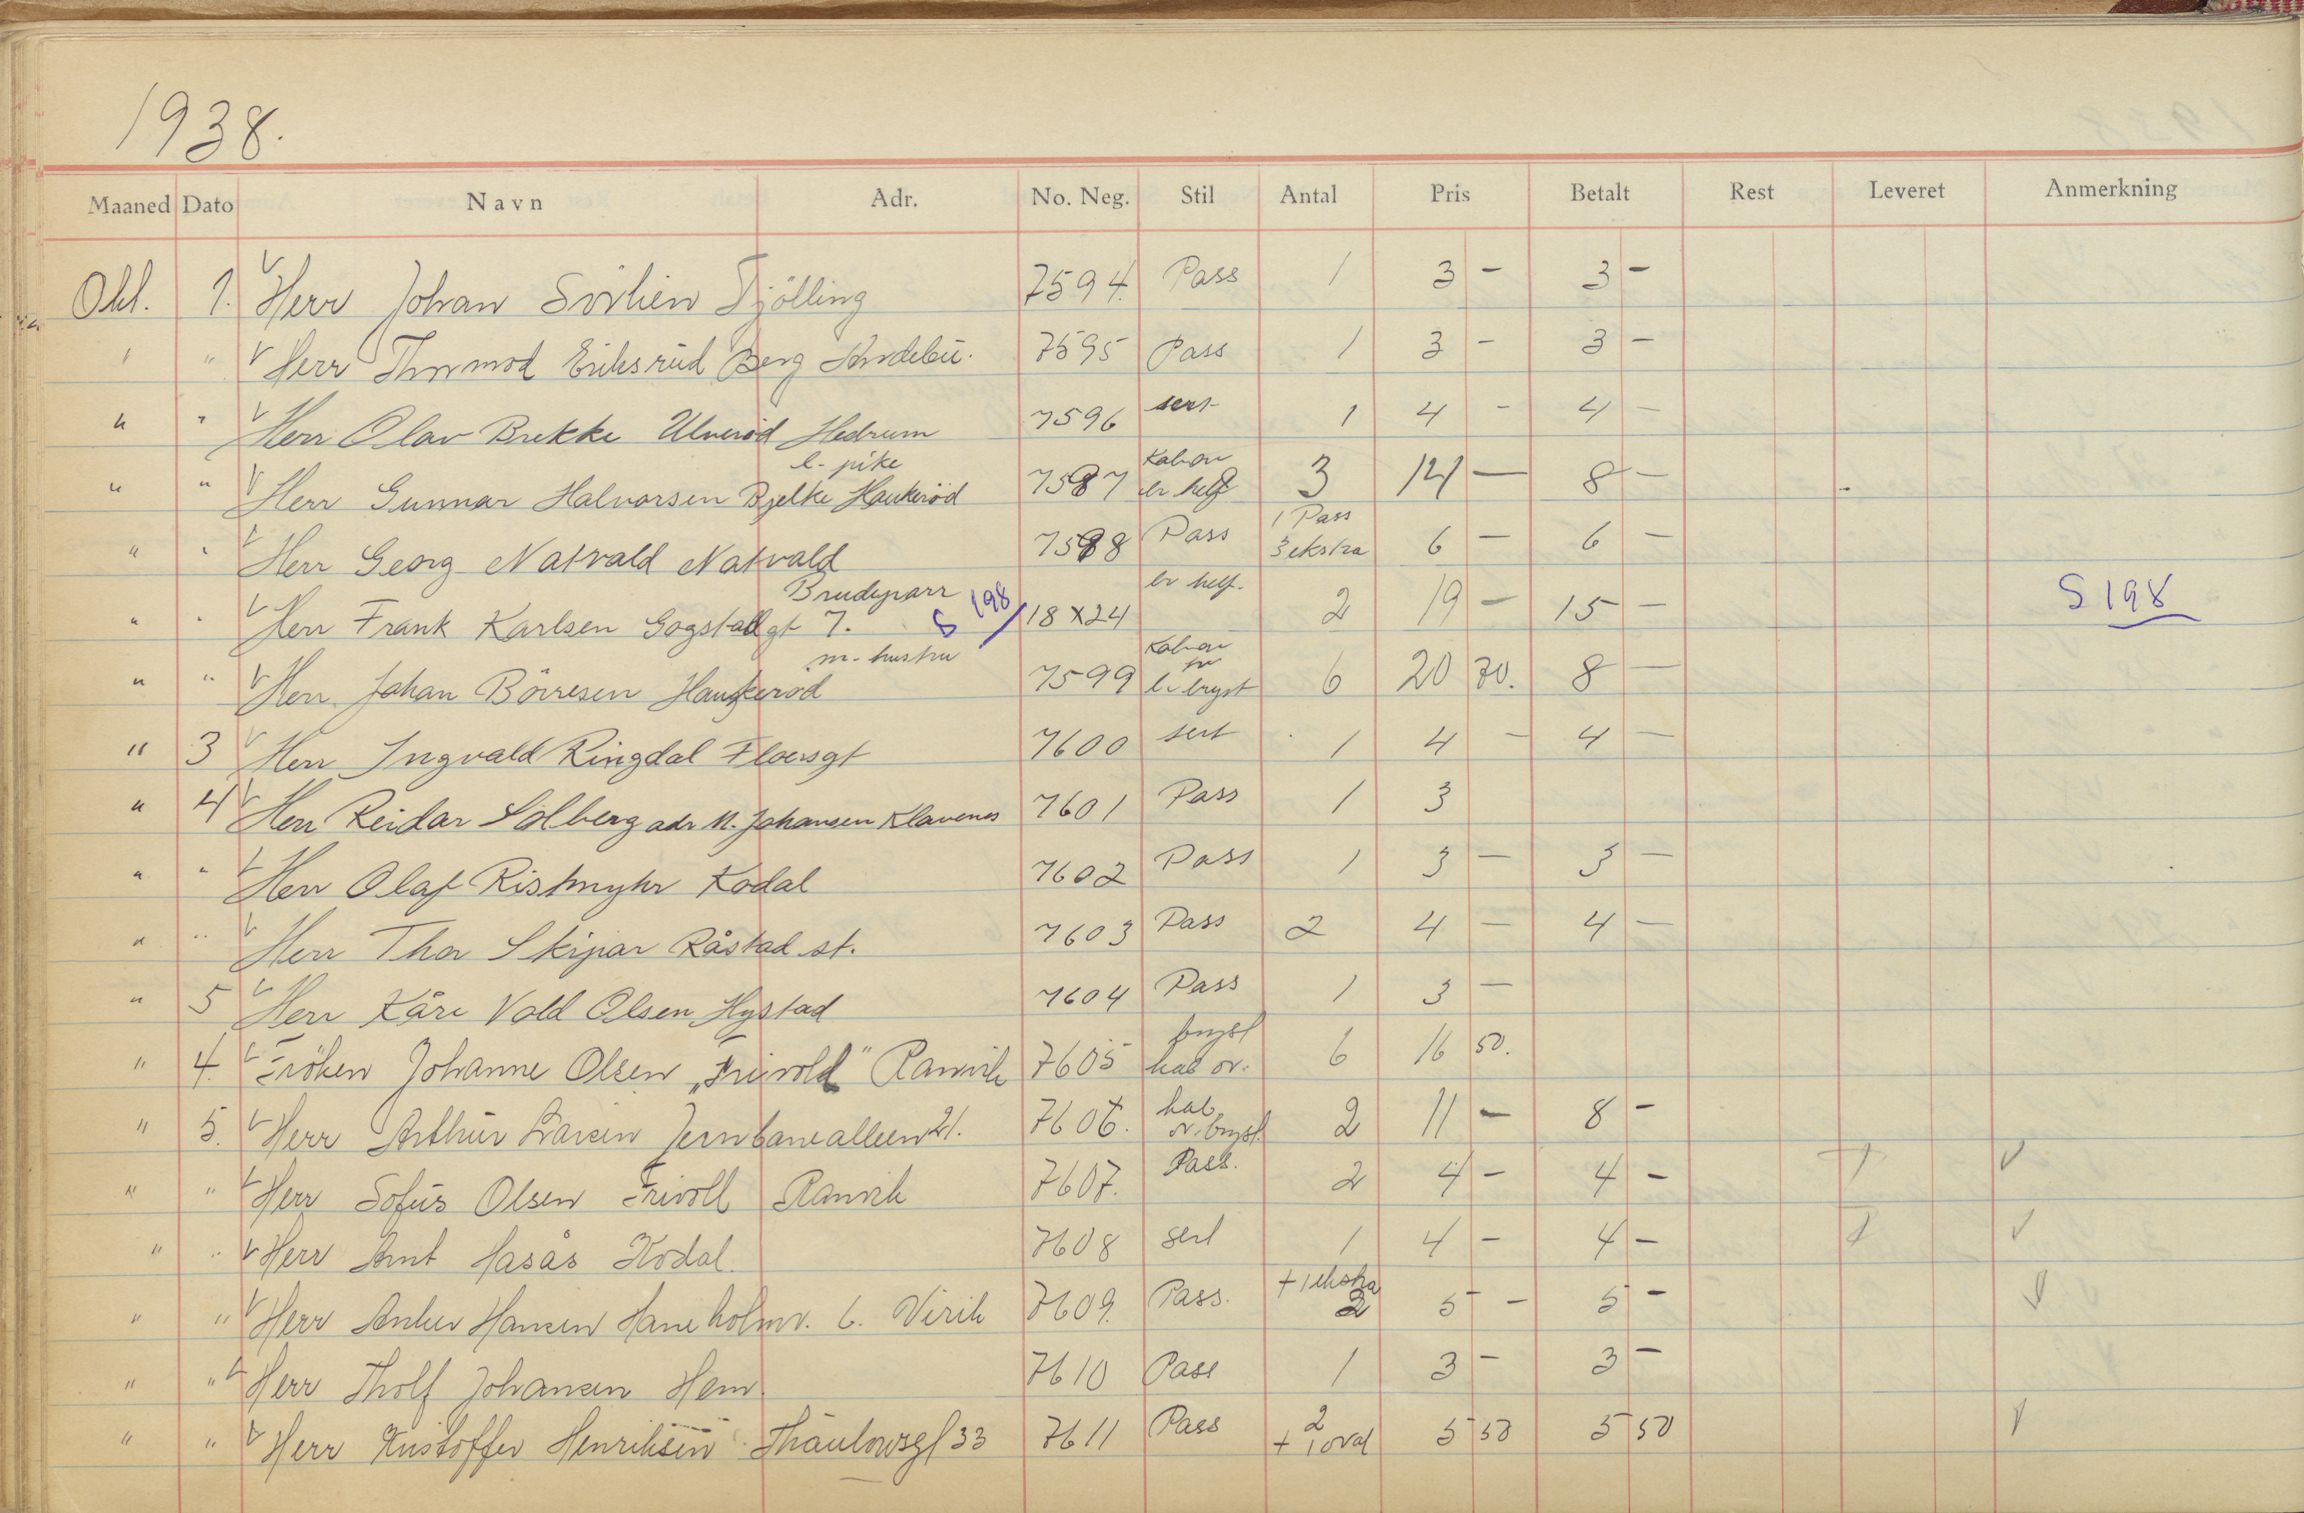 1938.
Maaned Dato Navn Adr. No. Neg. Stil Antal Pris Betalt Rest Leveret Anmerkning
Okt. 1. Herr Johan Sörlien Tjölling 7594. Pass 1 3 - 3 -
" " Herr Thormod Eriksrud Berg Andebu. 7595 Pass 1 3 - 3 -
" " Herr Olav Brekke Ulveröd Hedrum 7596 sert 1 4 - 4 -
l. pike Kab. or
" " Herr Gunnar Halvorsen Bjelke Haukeröd 7597 br helf 3 14 - 8 -
1 Pass
" " Herr Georg Natvald Natvald 7598 Pass 3 ekstra 6 - 6 -
Brudeparr br helf.
" " Herr Frank Karlsen Gogstadgt 7. S 198 / 18 x 24 2 19 - 15 - S 198
m. hustru Kab. or
" " Herr Johan Börresen Haukeröd 7599 br bryst 6 20 70. 8 -
" 3 Herr Ingvald Ringdal Floersgt 7600 sert 1 4 - 4 -
" 4 Herr Reidar Solberg adr M. Johansen Klavenes 7601 Pass 1 3
" " Herr Olaf Ristmyhr Kodal 7602 Pass 1 3 - 3 -
" " Herr Thor Skipar Råstad st. 7603 Pass 2 4 - 4 -
" 5 Herr Kåre Vold Olsen Hystad 7604 Pass 1 3 -
bryst
" 4. Fröken Johanne Olsen „Frivold" Ranvik 7605 kab or. 6 16 50.
kab.
" 5. Herr Arthur Larsen Jernbanealleen 21. 7606. or. bryst. 2 11 - 8 -
" " Herr Sofus Olsen Frivoll Ranvik 7607. Pass. 2 4 - 4 -
" " Herr Arnt Hasås Kodal. 7608 sert 1 4 - 4 -
+ 1 ekstra
" " Herr Anker Hansen Haneholmv. 6. Virik 7609. Pass. 2 5 - 5 -
" " Herr Tholf Johansen Hem 7610 Pass 1 3 - 3 -
2
" " Herr Kristoffer Henriksen Thaulowsgt 33 7611 Pass + 1 oval 5 50 5 50